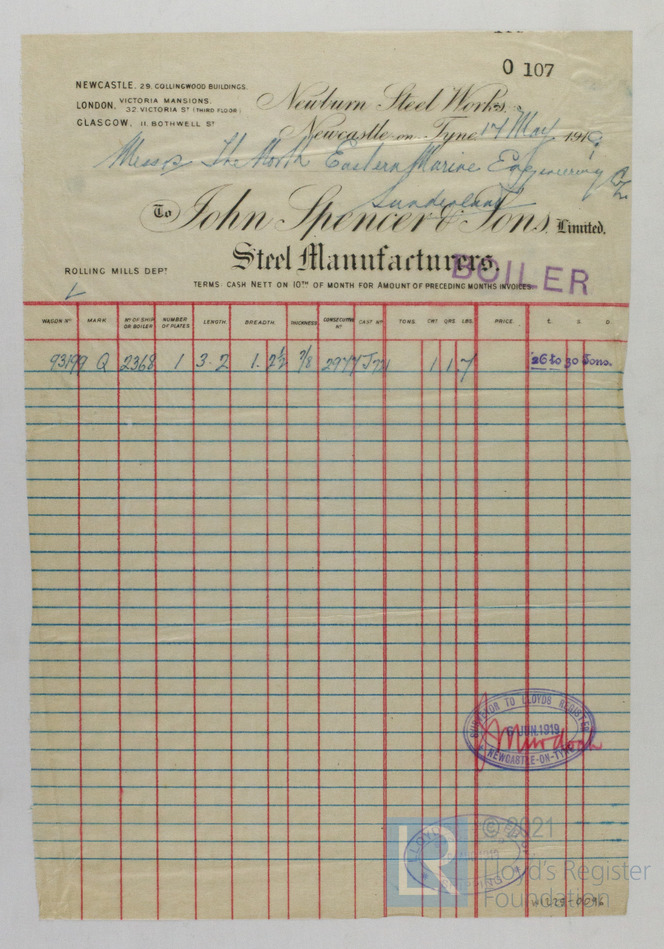 O 107
NEWCASTLE, 29. COLLINGWOOD BUILDINGS.
LONDON, VICTORIA MANSIONS, 32. VICTORIA ST (THIRD FLOOR)
GLASGOW, 11. BOTHWELL ST
Newburn Steel Works,
Newcastle-on-Tyne 17 May 1919
Messrs The North Eastern Marine Engineering Co
Sunderland
To John Spencer & Sons, Limited,
Steel Manufacturers.
BOILER
ROLLING MILLS DEPT
TERMS: CASH NETT ON 10TH OF MONTH FOR AMOUNT OF PRECEDING MONTHS INVOICES.
WAGON No. MARK. No. OF SHIP OR BOILER NUMBER OF PLATES. LENGTH. BREADTH. THICKNESS. CONSECUTIVE No. CAST No. TONS. CWT. QRS. LBS. PRICE. £. S. D.
93199 Q 2368 1 3. 2 1. 2½ 7/8 2977 1 1 7 26 to 30 Tons.
SURVEYOR TO LLOYDS REGISTER
JUN. 1919
NEWCASTLE-ON-TYNE
J Murdoch
LLOYD'S
SHIPPING
LR
© 2021
Lloyd's Register
Foundation
W1225-0096